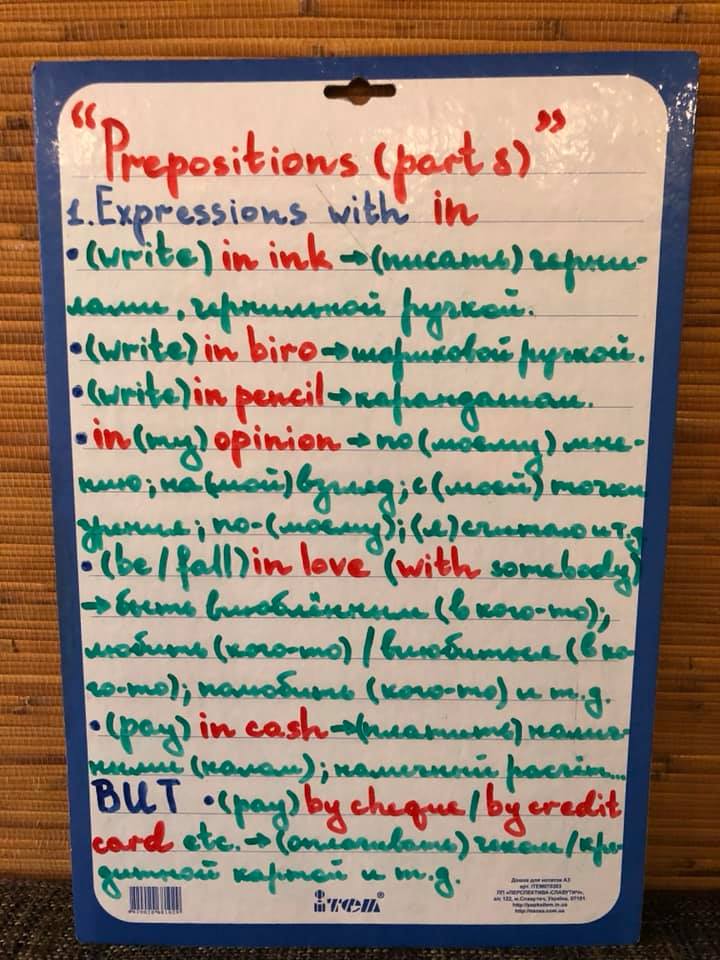 “Prepositions (part 8)”
1. Expressions with in
• (write) in ink → (писать) черни-
лами, чернильной ручкой.
• (write) in biro → шариковой ручкой.
• (write) in pencil → карандашом.
• in (my) opinion → по (моему) мне-
нию; на (мой) взгляд; с (моей) точки
зрения; по-(моему); (я) считаю и т.д
• (be / fall) in love (with somebody)
→ быть влюблённым (в кого-то);
любить (кого-то) / влюбиться (в ко-
го-то); полюбить (кого-то) и т.д.
• (pay) in cash → (платить) налич-
ными (налом); наличный расчёт...
BUT • (pay) by cheque / by credit
card etc. → (оплачивать) чеком / кре-
дитной картой и т.д.
item®
Дошка для нотаток А3
арт. ITEM070303
ПП «ПЕРСПЕКТИВА-СЛАВУТИЧ»,
а/с 122, м.Славутич, Україна, 07101